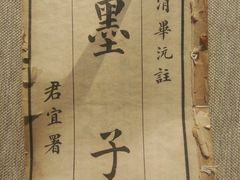 清畢沅註
墨子
君宜署